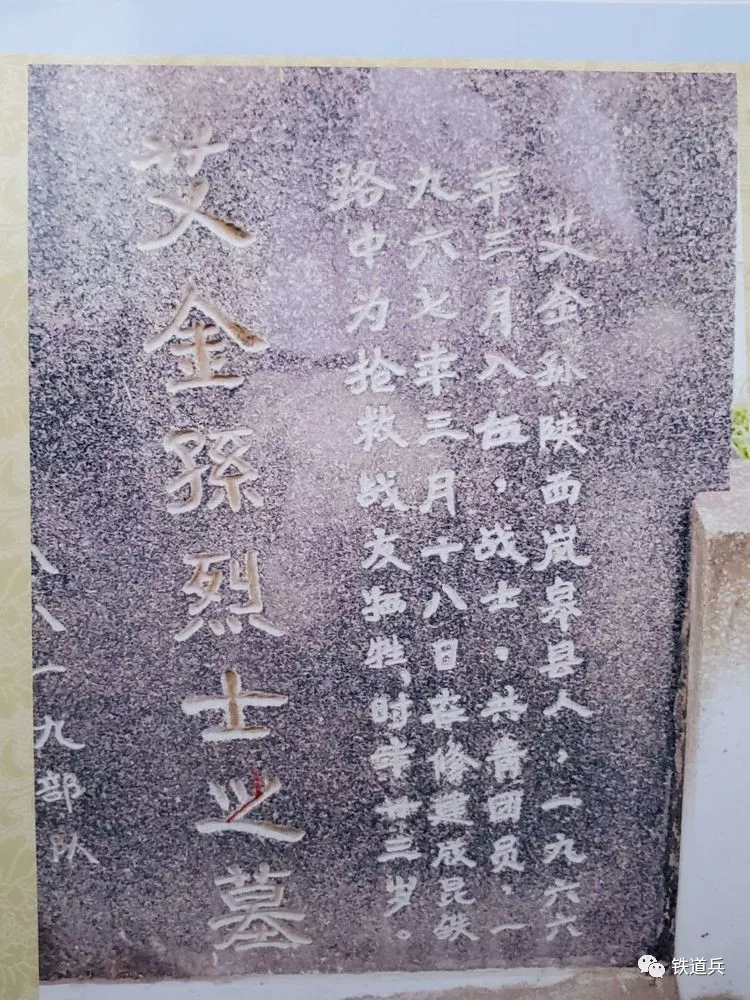 艾金孙陕西岚皋县人，一九六六
年三月入伍，战士，共青团员，一
九六七年三月十八日在修建成昆铁
路中为抢救战友牺牲，时年廿三岁。
艾金孫烈士之墓
八八一九部队
铁道兵